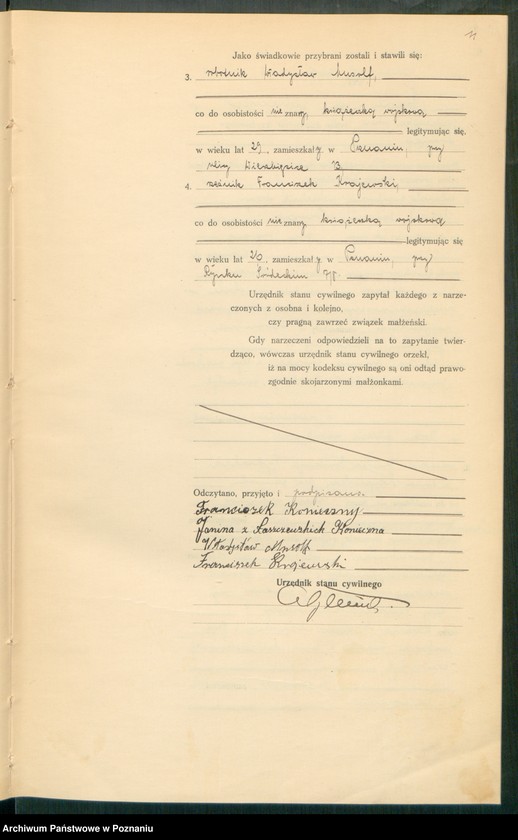 11
Jako świadkowie przybrani zostali i stawili się:
3. robotnik Władysław Musolf,
co do osobistości nie znany, książeczką wojskową
legitymując się.
w wieku lat 29, zamieszkały w Poznaniu, przy
ulicy Wierzbięcice
4. rzeźnik Franciszek Krajewski,
co do osobistości nie znany, książeczką wojskową
legitymując się
w wieku lat 26, zamieszkały w Poznaniu, przy
Rynku Śródeckim
Urzędnik stanu cywilnego zapytał każdego z narze-
czonych z osobna i kolejno,
czy pragną zawrzeć związek małżeński.
Gdy narzeczeni odpowiedzieli na to zapytanie twier-
dząco, wówczas urzędnik stanu cywilnego orzekł,
iż na mocy kodeksu cywilnego są oni odtąd prawo-
zgodnie skojarzonymi małżonkami.
Odczytano, przyjęto i podpisano.
Franciszek Konieczny
Janina z Łaszczewskich Konieczna
Władysław Musolf
Franciszek Krajewski
Urzędnik stanu cywilnego
Archiwum Państwowe w Poznaniu